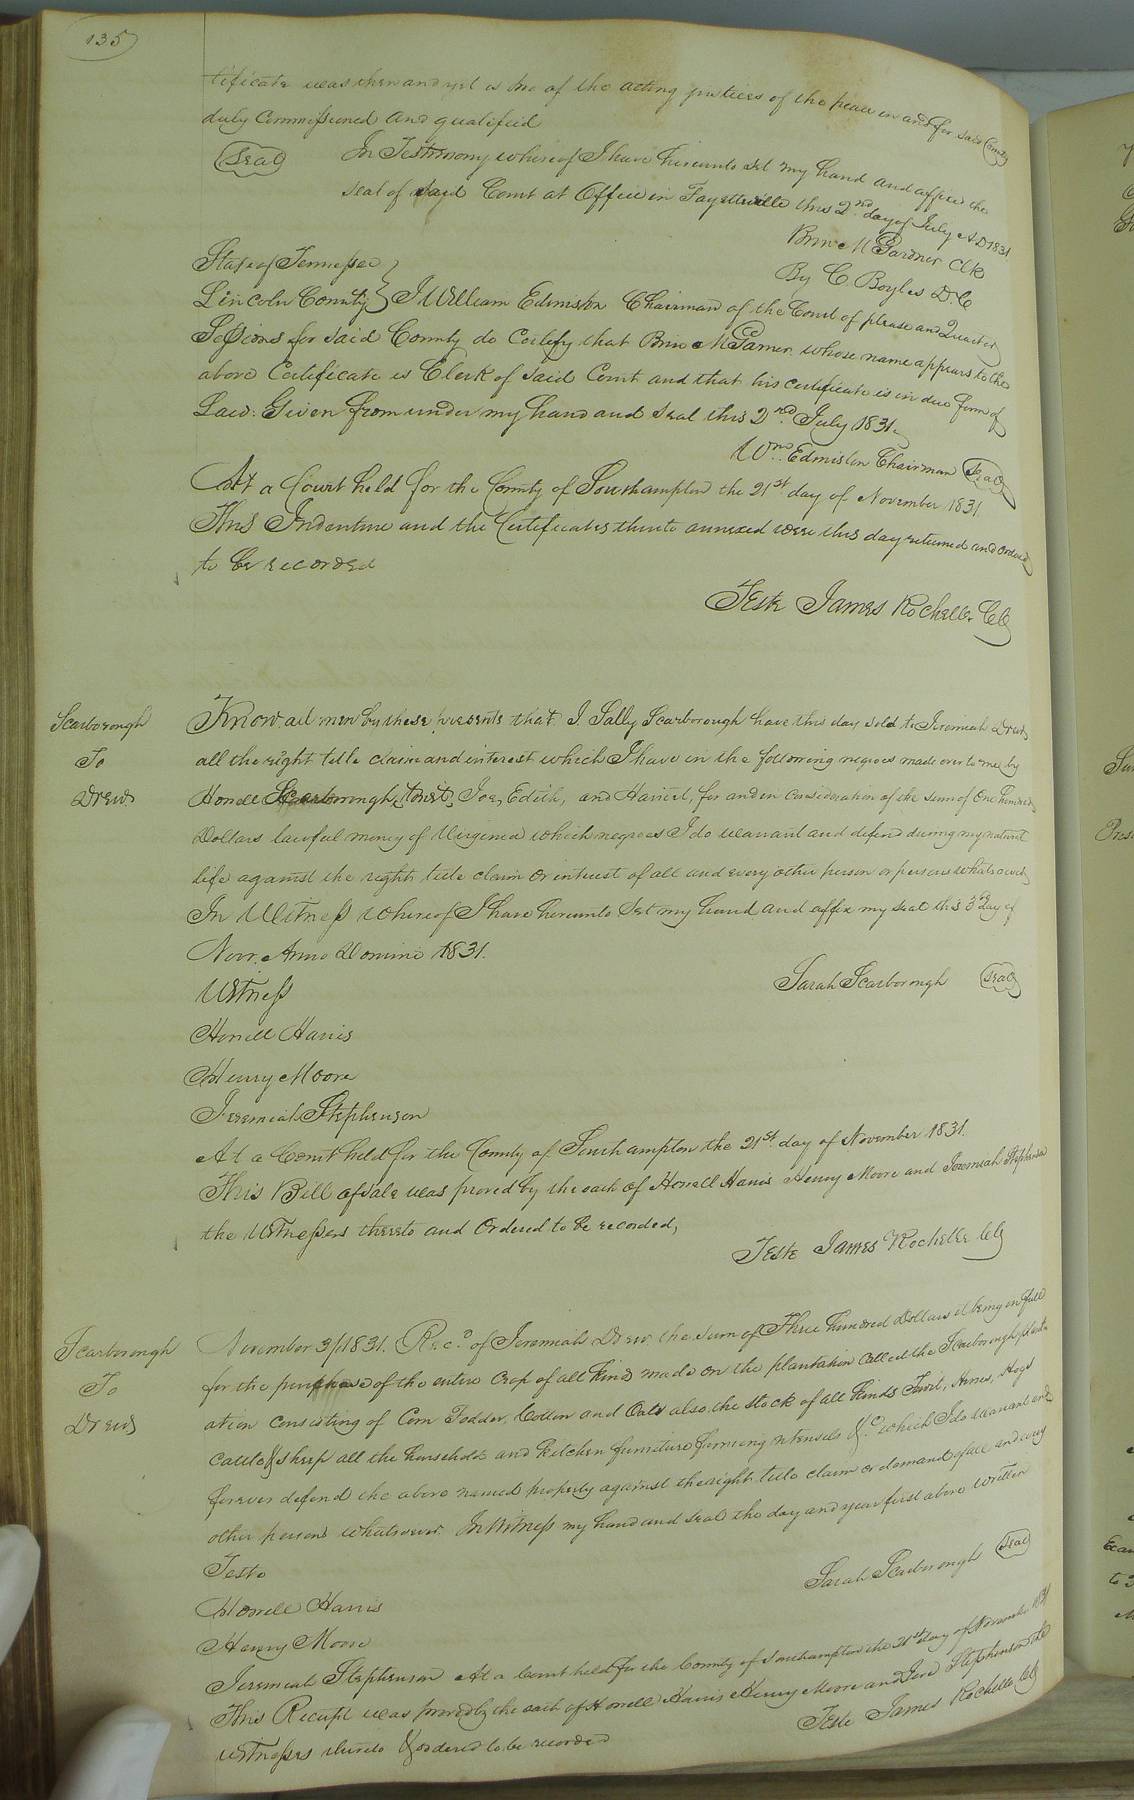 135
tificate was then and yet is one of the acting justices of the peace in and for said County
duly Commissioned and qualified
Seal In Testimony whereof I have hereunto set my hand and affixed the
seal of said Court at Office in Fayetteville this 2nd day of July AD 1831
Brice M Garner Clk
By C. Boyles D.C
State of Tennessee }
Lincoln County } I William Edmiston Chairman of the Court of please and Quarter
Sessions for said County do Certify that Brice M Garner whose name appears to the
above Certificate is Clerk of said Court and that his certificate is in due form of
Law. Given from under my hand and seal this 2nd July 1831
Wm. Edmiston Chairman Seal
At a Court held for the County of Southampton the 21st day of November 1831
This Indenture and the Certificates thereto annexed were this day returned and Ordered
to be recorded
Teste James Rochelle Clk
Scarborough
To
Drew
Know all men by these presents that I Sally Scarborough have this day sold to Jeremiah Drew
all the right title claim and interest which I have in the following negroes made over to me by
Howell Scarborough, to wit, Joe, Edith, and Harriet, for and in consideration of the sum of One hundred
Dollars lawful money of Virginia which negroes I do warrant and defend during my natural
life against the right title claim or interest of all and every other person or persons whatsoever
In Witness whereof I have hereunto set my hand and affix my seal this 3d day of
Novr. Anno Domini 1831.
Witness
Sarah Scarborough Seal
Howell Harris
Henry Moore
Jeremiah Stephenson
At a Court held for the County of Southampton the 21st day of November 1831.
This Bill of sale was proved by the oath of Howell Harris Henry Moore and Jeremiah Stephenson
the Witnesses thereto and Ordered to be recorded,
Teste James Rochelle Clk
Scarborough
To
Drew
November 3/1831. Recd. of Jeremiah Drew the sum of Three hundred Dollars it being in full
for the purchase of the entire Crop of all kind made on the plantation called the Scarborough plant
ation consisting of Corn Fodder, Cotton and Oats also the stock of all kinds Towit, Horses, Hogs
cattle & sheep all the household and kitchen furniture farming utensils &c which I do warrant and
forever defend the above named property against the right title claim or demand of all and every
other persons whatsoever. In Witness my hand and seal the day and year first above written
Teste
Sarah Scarborough Seal
Howell Harris
Henry Moore
Jeremiah Stephenson At a Court held for the County of Southampton the 21st day of November 1831
This Receipt was proved by the oath of Howell Harris Henry Moore and Jere Stephenson the
Witnesses thereto & ordered to be recorded
Teste James Rochelle Clk